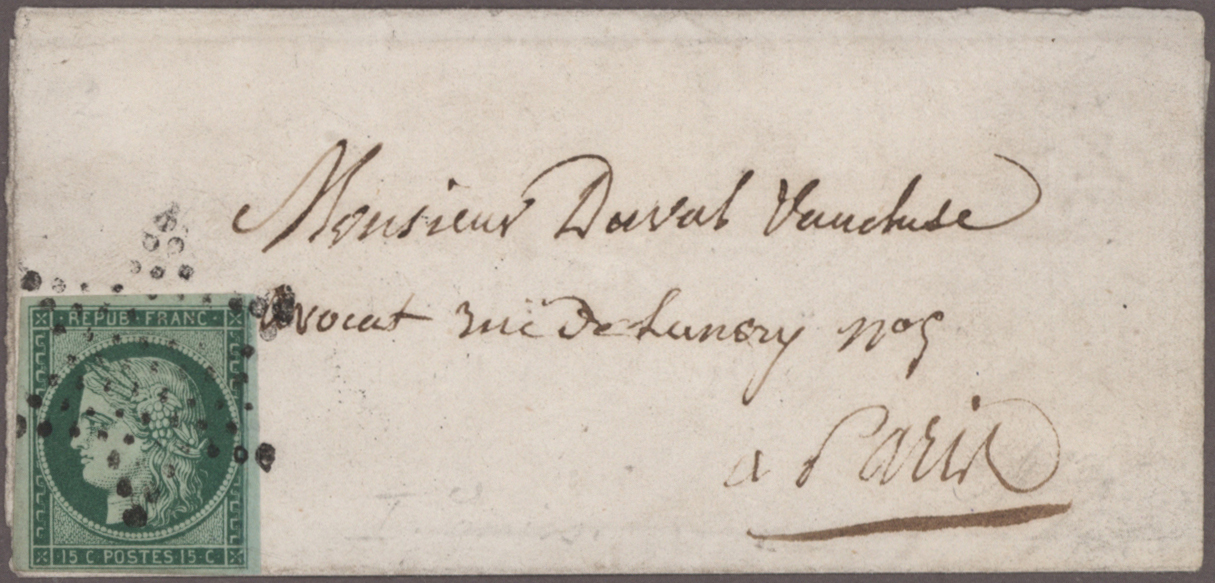 Monsieur Duval Vaucluse
avocat rue de Lancry no 5
a Paris
REPUB. FRANC.
15 C POSTES 15 C